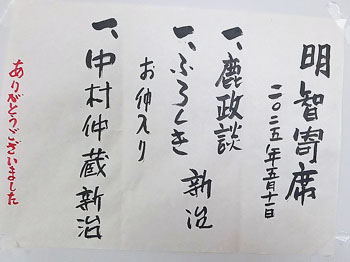 明智寄席
二〇二五年五月十一日
一、鹿政談
一、ふろしき 新治
お仲入り
一、中村仲蔵 新治
ありがとうございました